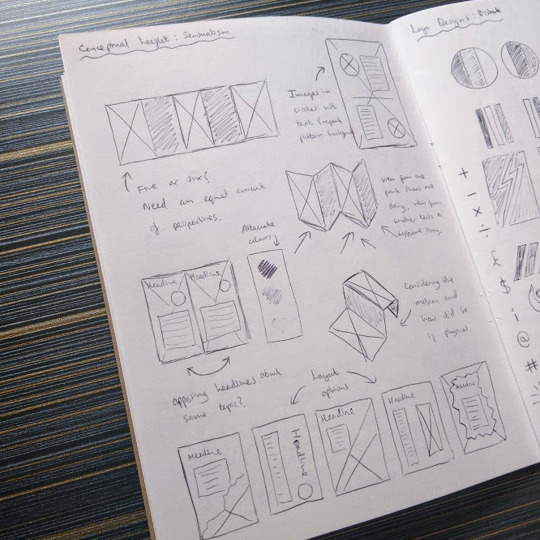 Conceptual Leaflet: Sensualism
Images in
circles with
text (repeat
pattern background
Five or six?
Need an equal amount
of perspectives.
View from one
point shows one
thing, view from
another tells a
different thing.
Alternate
colours
Headline
Headline
Considering the
motion and
how it'd be
if physical.
opposing headlines about
same topic?
Layout
options
Headline
Headline
Headline
Headline
Headline
Logo Designs:
+
-
×
÷
£
$
i
@
#